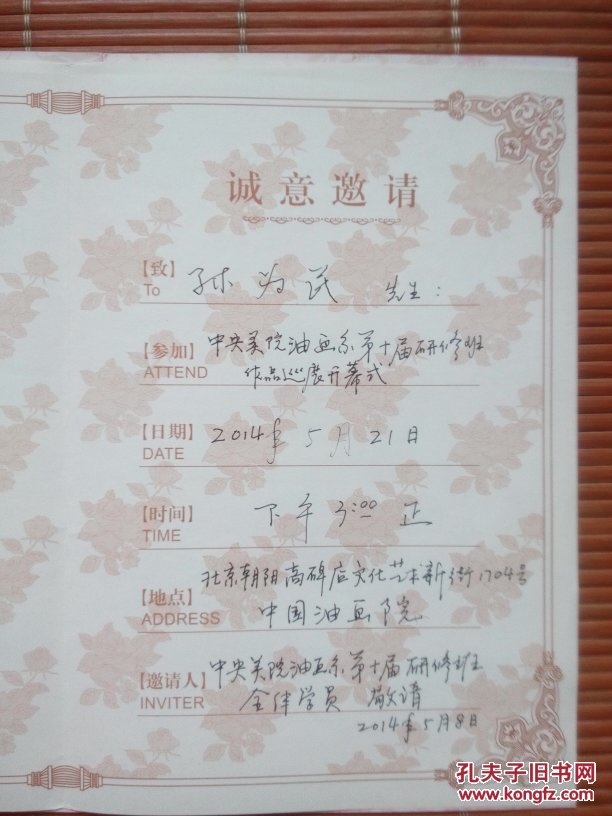 诚意邀请
【致】 孙为民 先生：
To
【参加】 中央美院油画系第十届研修班
ATTEND 作品巡展开幕式
【日期】 2014年5月21日
DATE
【时间】 下午3:00正
TIME
北京朝阳高碑店文化艺术新街1704号
【地点】 中国油画院
ADDRESS
【邀请人】 中央美院油画系第十届研修班
INVITER 全体学员 敬请
2014年5月8日
孔夫子旧书网
www.kongfz.com